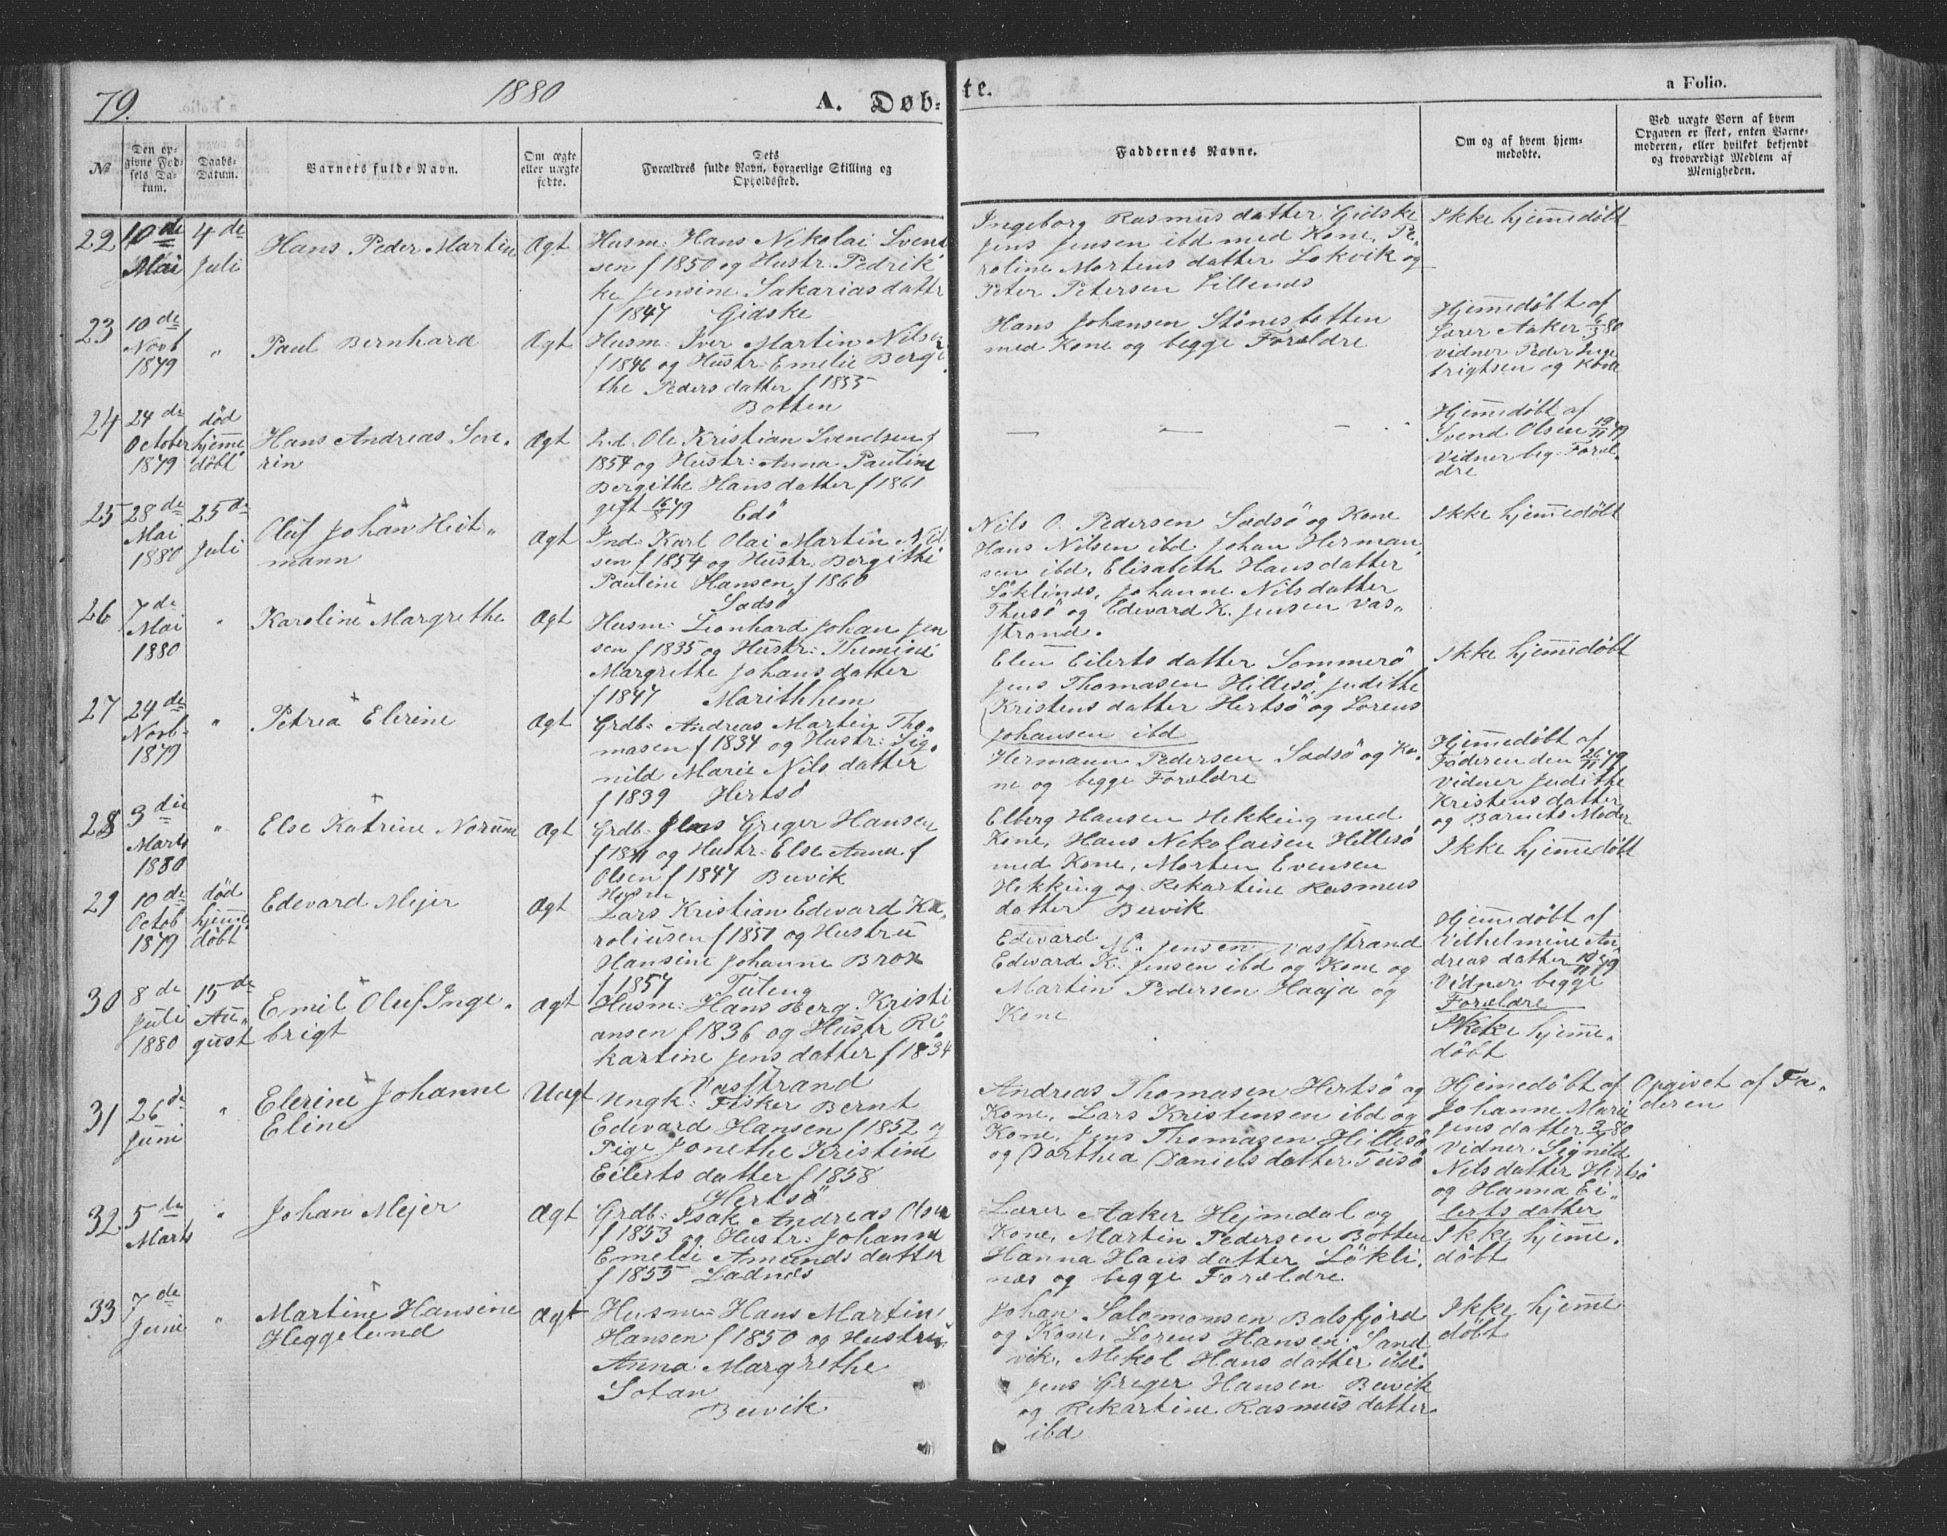 79.
1880
A. Døb-
te.
a Folio.
№
Den op-
givne Fød-
sels Da-
tum.
Daabs-
Datum.
Barnets fulde Navn.
Om ægte
eller uægte
fødte.
Dets
Forældres fulde Navn, borgerlige Stilling og
Opholdssted.
Faddernes Navne.
Om og af hvem hjem-
medøbte.
Ved uægte Børn af hvem
Opgaven er skeet, enten Barne-
moderen, eller hvilket bekjendt
og troværdigt Medlem af
Menigheden.
22
10de
Mai
4de
Juli
Hans Peder Martin
Ægt
Husm: Hans Nikolai Svend
sen f 1850 og Hustr. Pedrik
ke Jensine Sakariasdattr
f 1847 Gidske
Ingeborg Rasmusdatter Gidske
Jens Jensen ibd med Kone, Pe-
roline Mortensdatter Lökvik og
Peter Petersen Lillends
Ikke hjemmedöbt
23
10de
Novb
1879
"
Paul Bernhard
Ægt
Husm: Iver Martin Nilsen
f 1846 og Hustr: Emelie Bergi
the Pedersdatter f 1855
Botten
Hans Johansen Stönesbotten
med Kone og begge Forældre
Hjemmedöbt af
Lærer Aaker 6/3 80
vidner Peder Inge
brigtsen og Kone
24
24de
October
1879
död
hjemme
döbt
Hans Andreas Seve-
rin
Ægt
Ind. Ole Kristian Svendsen f
1854 og Hustr: Anna Pauline
Bergithe Hansdatter f 1861
gift 16/8 79 Edö
— " - "
Hjemmedöbt af
Svend Olsen 19/11 79
Vidner beg. Foræl-
dre
25
28de
Mai
1880
25de
Juli
Oluf Johan Heit-
mann
Ægt
Ind: Karl Olai Martin Nil
sen f 1854 og Hustr. Bergithe
Pauline Hansen f 1860
Sadsö
Nils O. Pedersen Sadsö og Kone
Hans Nilsen ibd. Johan Herman
sen ibd. Elisabeth Hansdatter
Löklinds, Johanne Nilsdatter
Thusö og Edevard K. Jensen Vas-
strand.
Ikke hjemmedöbt
26
7de
Mai
1880
"
Karoline Margrethe
Ægt
Husm: Leonhard Johan Jen
sen f 1835 og Hustr: Themine
Margrethe Johansdatter
f 1847 Marithhem
Elen Eilertsdatter Sommerö
Jens Thomasen Hillesö, Judithe
Kristensdatter Hertsö og Lorens
Johansen ibd
Ikke hjemmedöbt
27
24de
Novb-
1879
"
Petrea Elerine
Ægt
Grdb: Andreas Martin Tho-
masen f 1834 og Hustr: Sig-
nild Marie Nilsdatter
f 1839 Hertsö
Hermann Pedersen Sadsö og Ko-
ne og begge Forældre
Hjemmedöbt af
Faderen den 26/11 79
Vidner Judithe
Kristensdatter
og Barnets Moder
28
3die
Marts
1880
"
Else Katrine Norum
Ægt
Grdb: Jens Greger Hansen
og Hustr: Else Anna
Olsen f 1847 Buvik
Elberg Hansen Hekking med
Kone, Hans Nikolaisen Hillesö
med Kone, Morten Evensen
Hekking og Rekartine Rasmus
datter Buvik
Ikke hjemmedöbt
29
10de
Octob
1879
död
hjemme
döbt
Edevard Mejer
Ægt
Husm
Lars Kristian Edevard Ka-
roliusen f 1851 og Hustru
Hansine Johanne Brox
f 1857 Tuteng
Edevard M. Jensen Vasstrand
Edevard K. Jensen ibd og Kone og
Martin Pedersen Haaja og
Kone
Hjemmedöbt af
Vilhelmine An-
dreasdatter 10/11 79
Vidner begge
Forældre
30
8de
Juli
1880
15de
Au-
gust
Emil Oluf Inge-
brigt
Ægt
Husm: Hans Berg Kristi
ansen f 1836 og Hustr Ri
kartine Jensdatter f 1834
Vasstrand
Ikke hjemme-
döbt
31
26de
Juni
"
Elerine Johanne
Eline
Uægt
Ungk: Fisker Bernt
Edevard Hansen f 1852 og
Pige Jonethe Kristine
Eilertsdatter f 1858
Hertsö
Andreas Thomasen Hertsö og
Kone, Lars Kristensen ibd og
Kone, Jens Thomasen Hillesö
og Darthea Danielsdatter Tusö
Hjemmedöbt af
Johanne Marie
Jensdatter 3/7 80
Vidner Signild
Nilsdatter Hertsö
og Hanna Ei-
lertsdatter
Opgivet af Fa-
deren
32.
5de
Marts
"
Johan Mejer
Ægt
Grdb: Isak Andreas Olsen
f 1853 og Hustr: Johanne
Emelie Amundsdatter
f 1855 Ladnes
Lærer Aaker Hejmdal og
Kone, Martin Pedersen Botten
Hanna Hansdatter Lökli-
næs og begge Forældre
Ikke hjemme-
döbt
33
7de
Juni
"
Martine Hansine
Heggelund
Ægt
Husm: Hans Martin
Hansen f 1850 og Hustru
Anna Margrethe
Sotan
Buvik
Johan Salomonsen Balsfjord
og Kone, Lorens Hansen Sand
vik, Nikol Hansdatter ibd.
Jens Greger Hansen Buvik
og Rekartine Rasmusdatter
ibd
Ikke hjemme
döbt